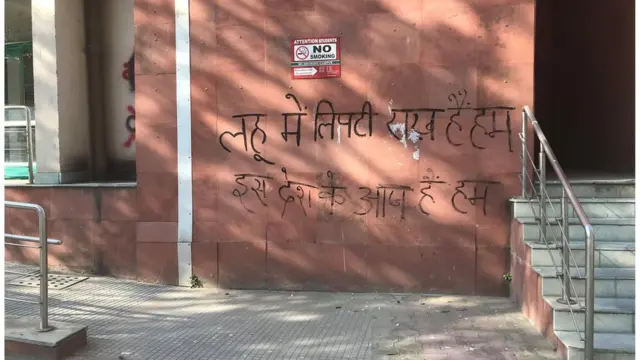 ATTENTION STUDENTS
NO
SMOKING
लहू में लिपटी राख हैं हम
इस देश के आप हैं हम